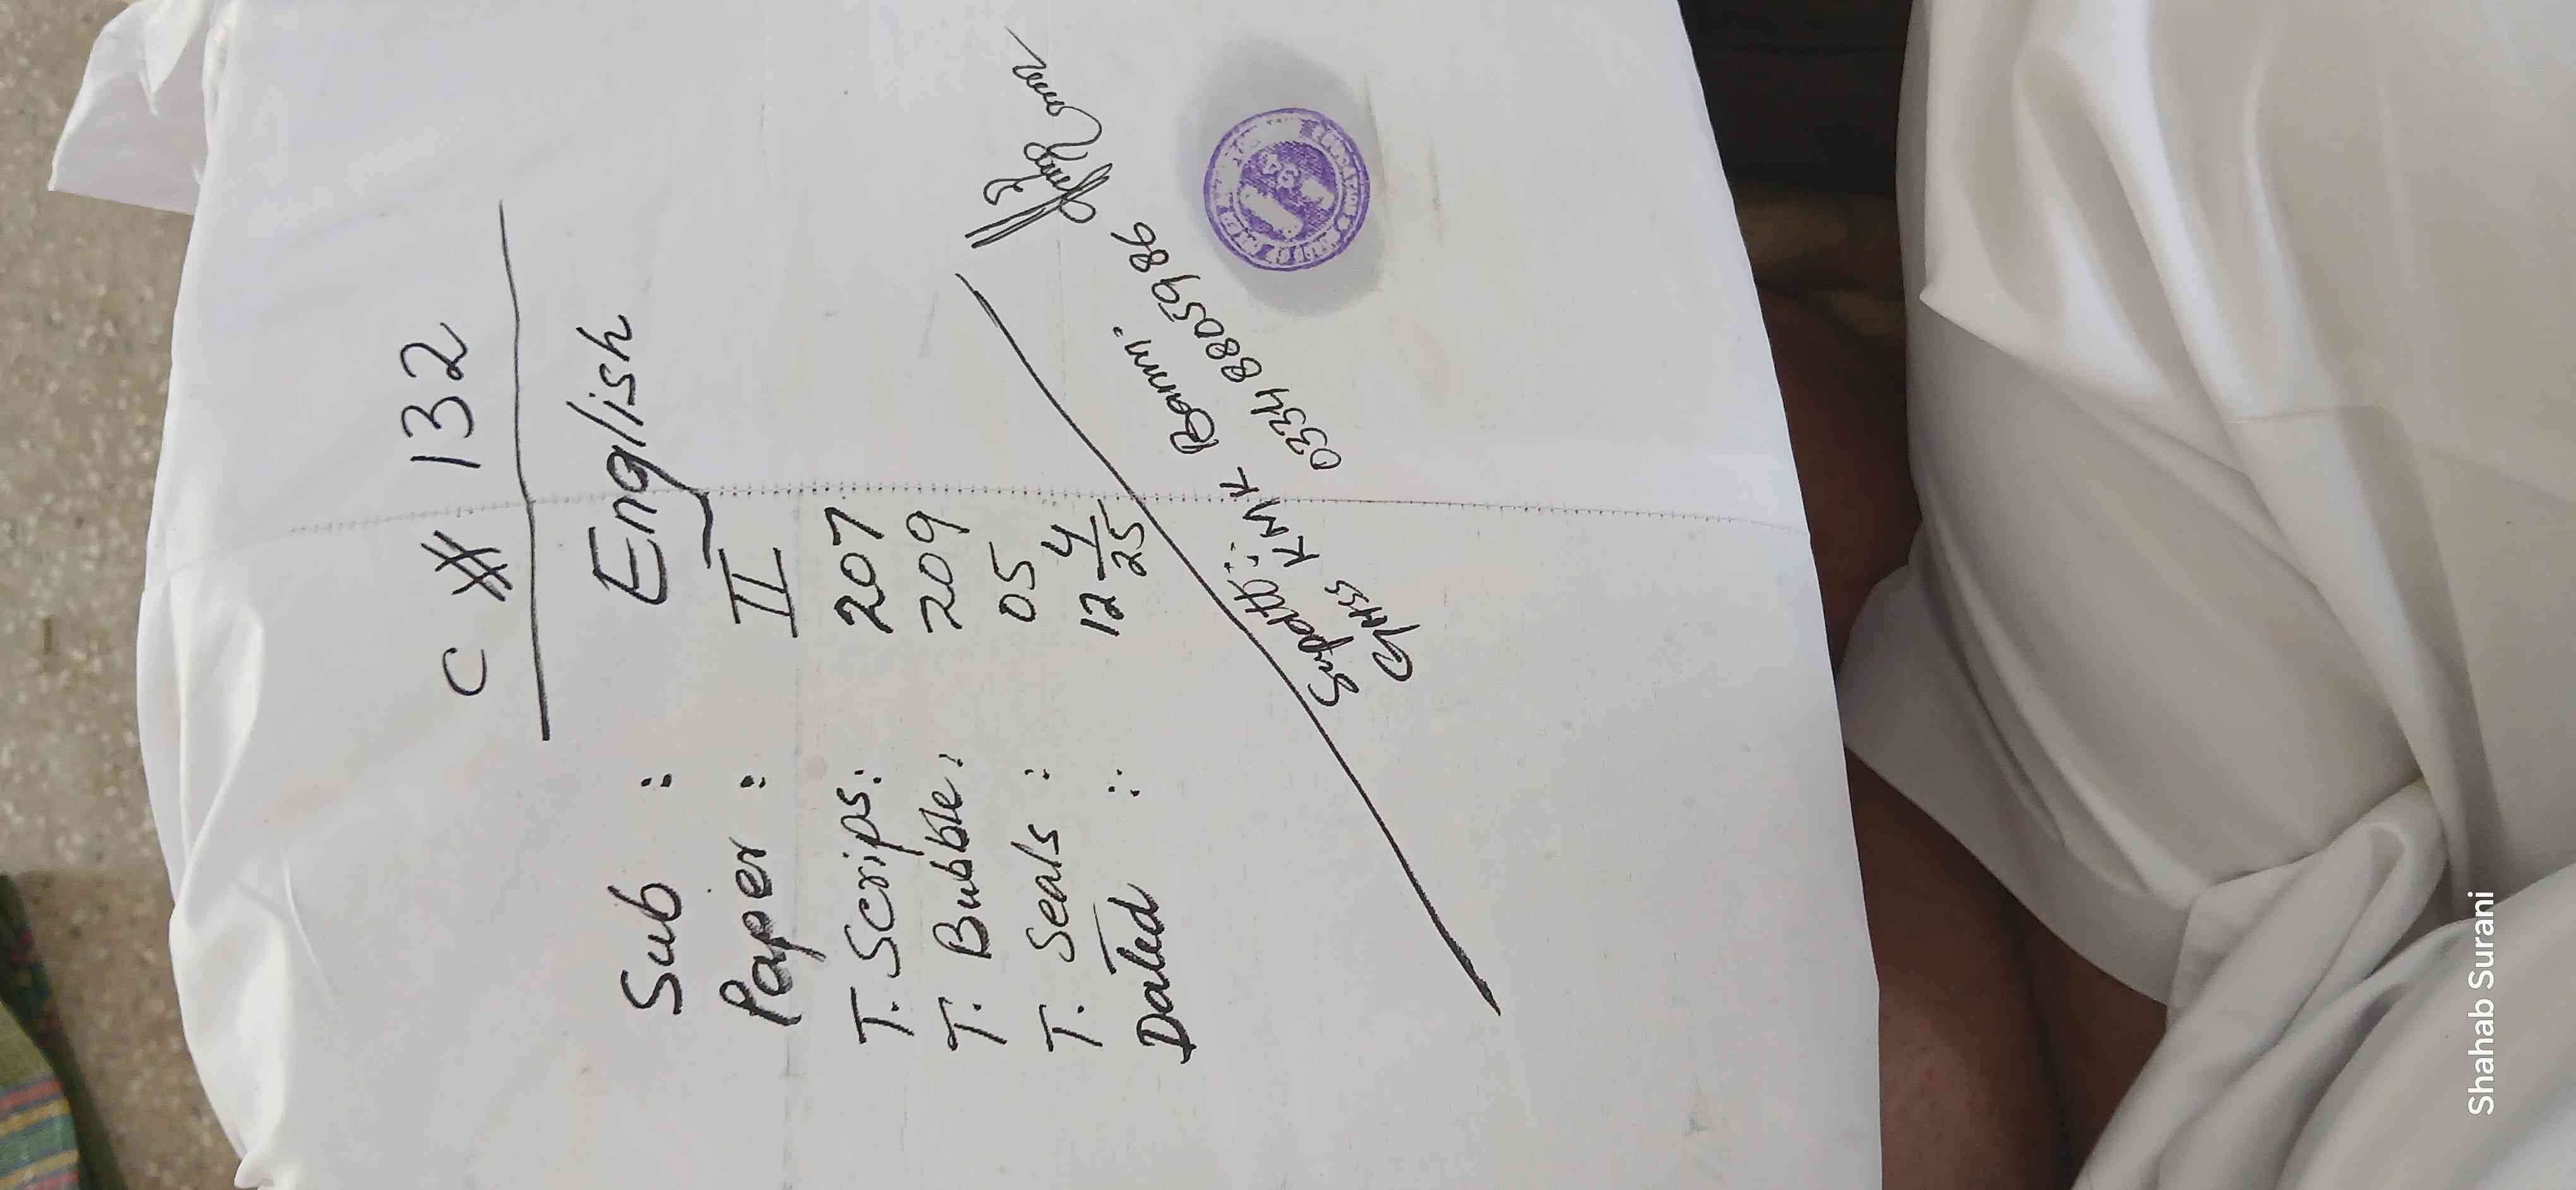 C # 132
Sub : English
Paper : II
T. Scrips: 207
T. Bubble: 209
T. Seals : 05
Dated :: 12 4/25
Supdtt::
GHSS KMK Bannu.
0334 8805986
Shahab Surani